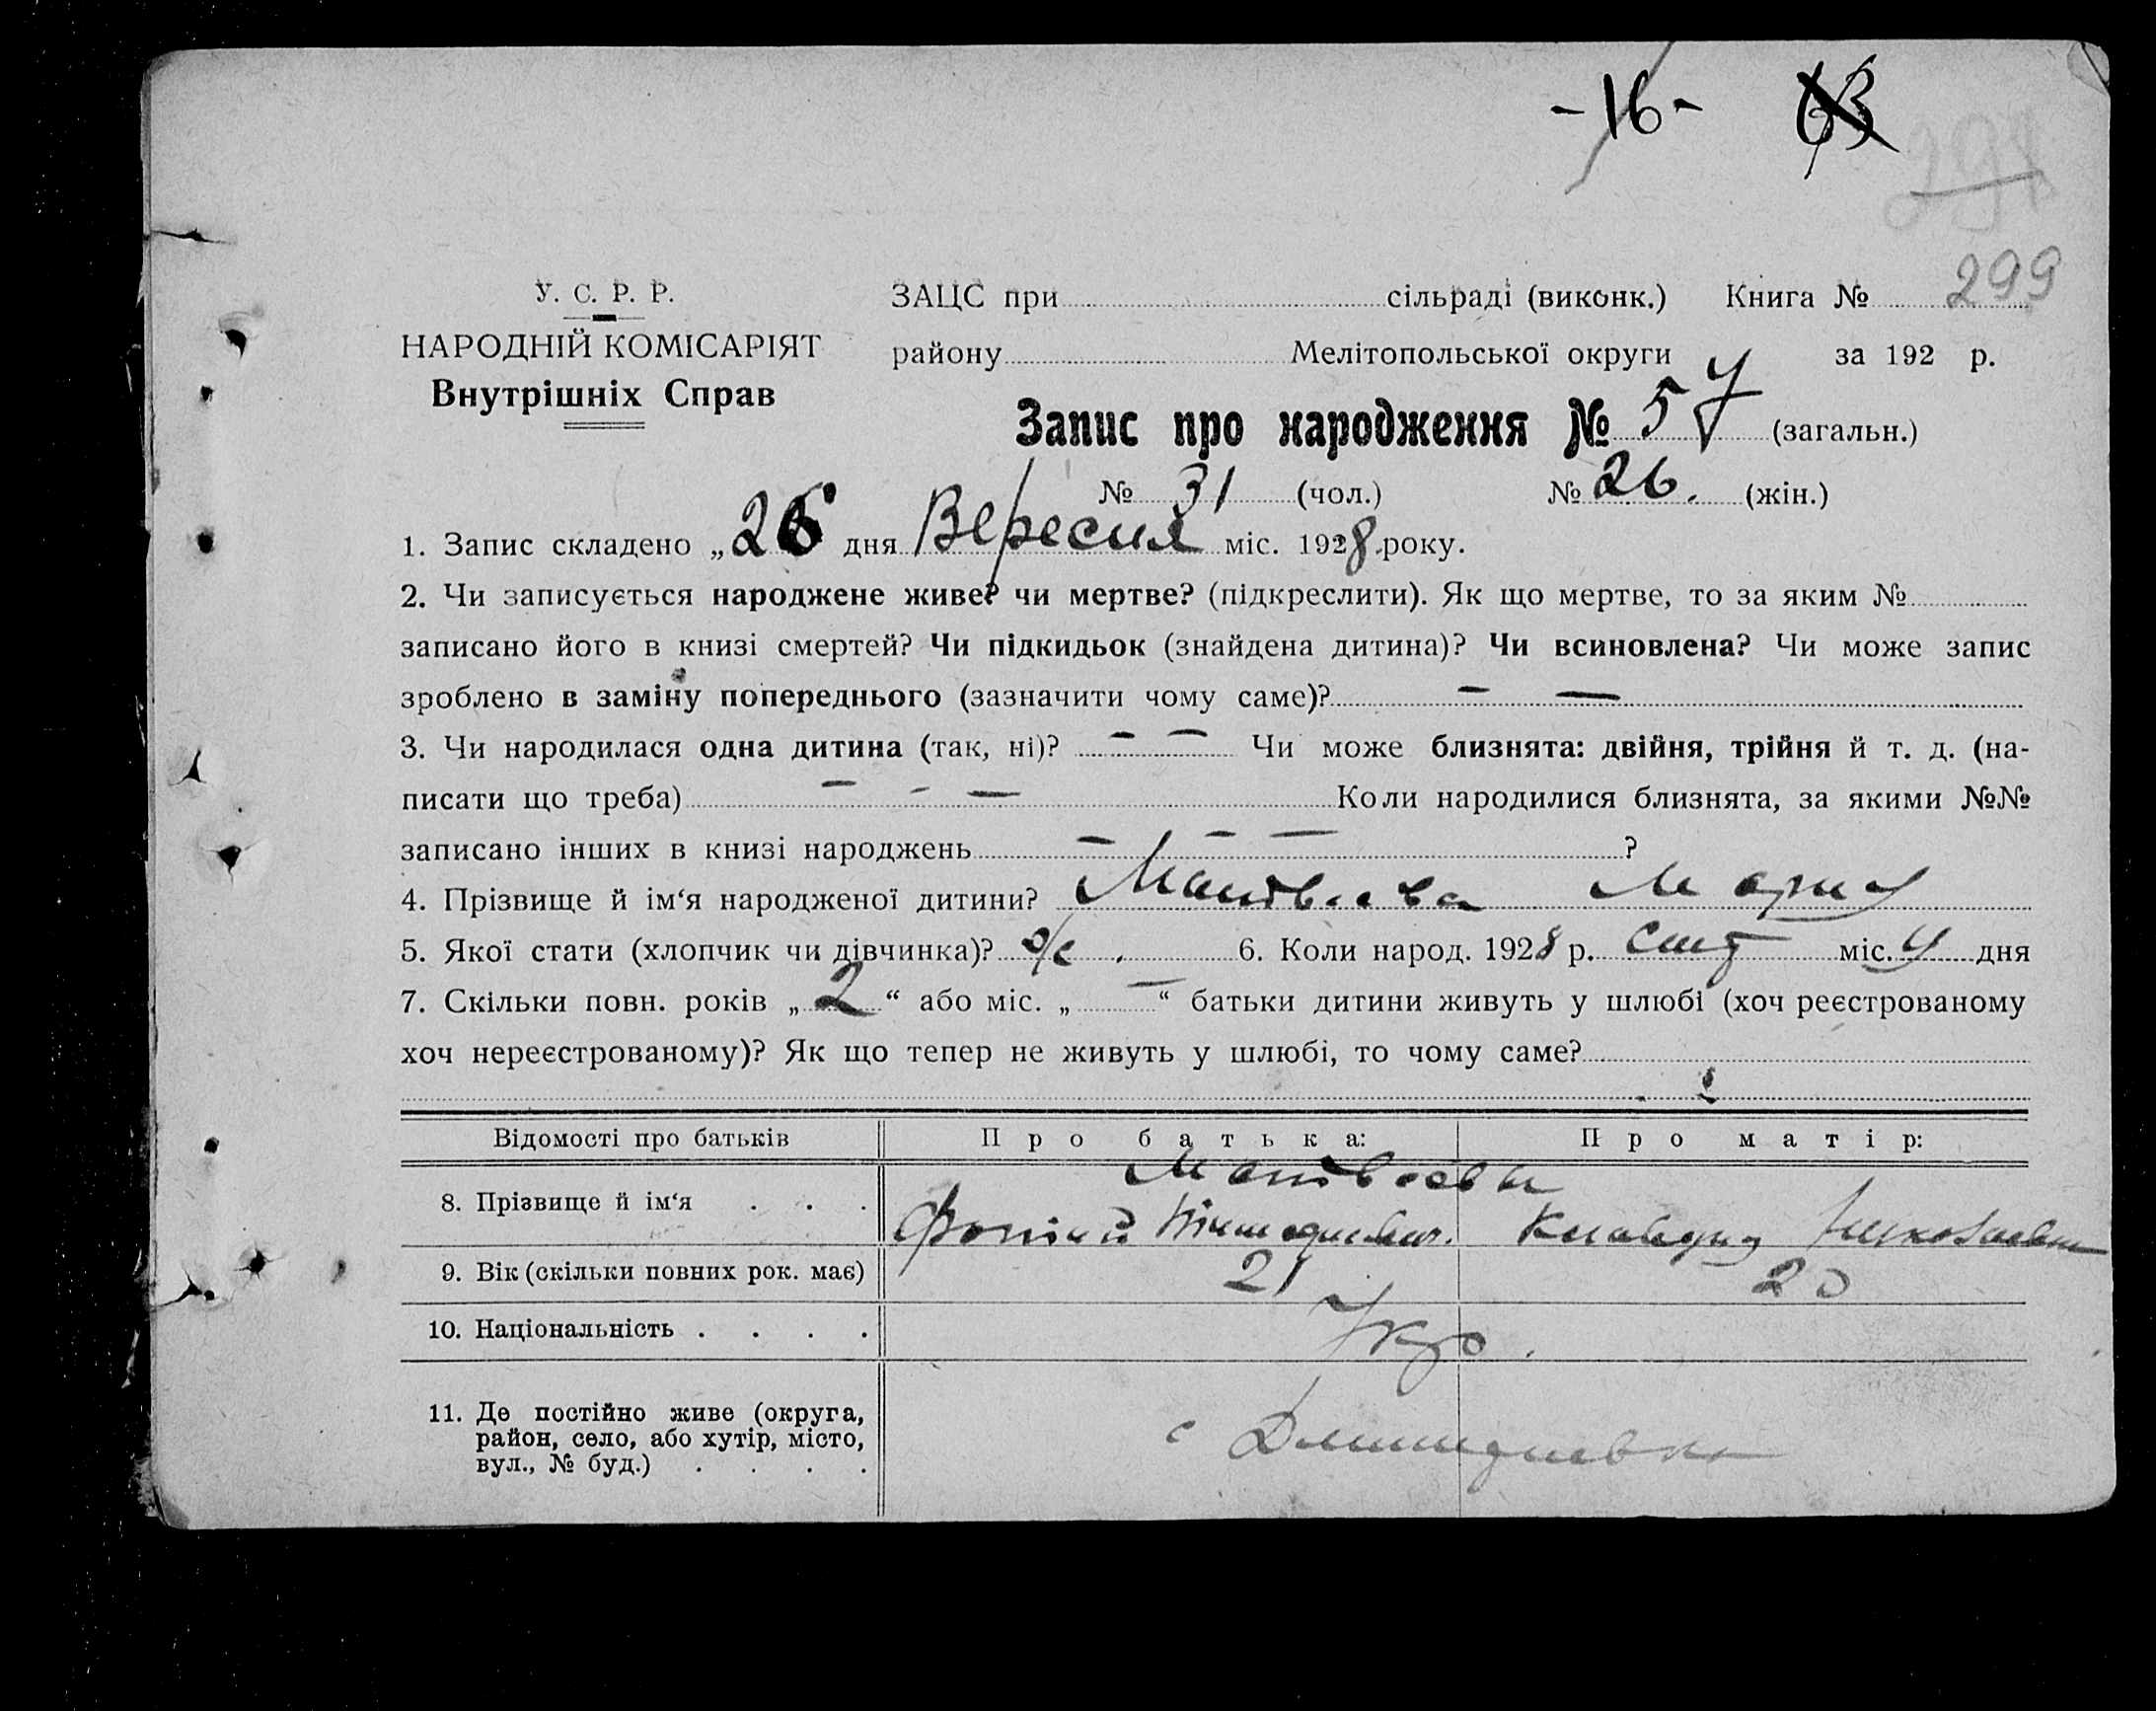 -16- 63
299
У. С. Р. Р.
НАРОДНІЙ КОМІСАРІЯТ
Внутрішніх Справ
ЗАЦС при сільраді (виконк.) Книга №
району Мелітопольської округи за 192 р.
Запис про народження № 57 (загальн.)
№ 31 (чол.) № 26. (жін.)
1. Запис складено „26 дня Вересня міс. 1928 року.
2. Чи записується народжене живе? чи мертве? (підкреслити). Як що мертве, то за яким №
записано його в книзі смертей? Чи підкидьок (знайдена дитина)? Чи всиновлена? Чи може запис
зроблено в заміну попереднього (зазначити чому саме)? — —
3. Чи народилася одна дитина (так, ні)? — — Чи може близнята: двійня, трійня й т. д. (на-
писати що треба) — - — Коли народилися близнята, за якими №№
записано інших в книзі народжень — — — ?
4. Прізвище й ім‘я народженої дитини? Матвеева Мария
5. Якої стати (хлопчик чи дівчинка)? ж. 6. Коли народ. 1928 р. міс. 4 дня
7. Скільки повн. років „2“ або міс. „—“ батьки дитини живуть у шлюбі (хоч реєстрованому
хоч нереєстрованому)? Як що тепер не живуть у шлюбі, то чому саме?
Відомості про батьків Про батька: Про матір:
Матвеевы
8. Прізвище й ім‘я . . . Клавдия Николаевна
9. Вік (скільки повних рок. має) 21 20
10. Національність . . . . Укр.
11. Де постійно живе (округа,
район, село, або хутір, місто,
вул., № буд.) . . . . с